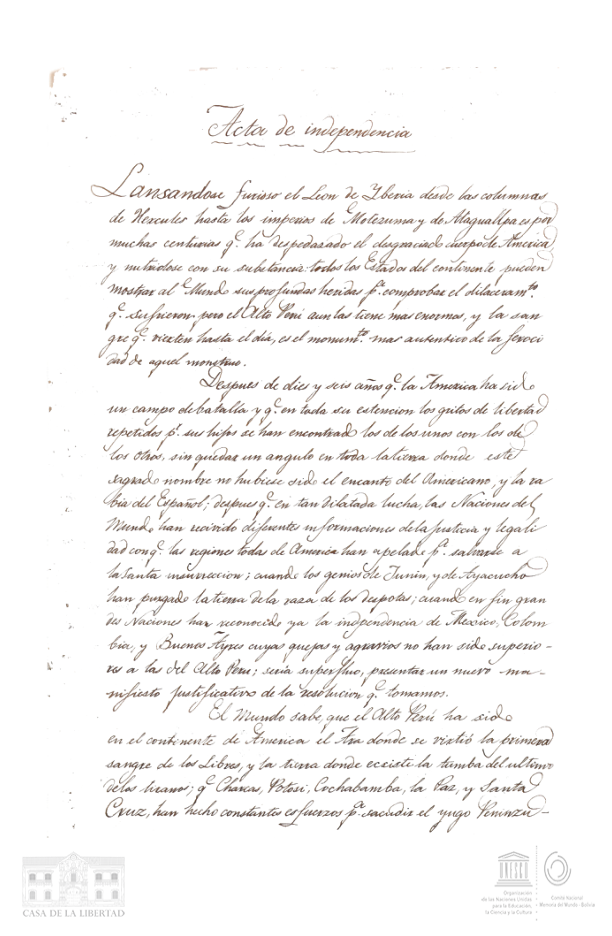 Acta de independencia
Lansandose furioso el Leon de Yberia desde las columnas
de Hercules hasta los imperios de Motezuma y de Ataguallpa es por
muchas centurias q.e ha despedasado el desgraciado cuerpo de America
y nutridose con su substancia. todos los Estados del continente pueden
mostrar al Mundo sus profundas heridas p.a comprobar el dilaceram.to
q.e sufrieron; pero el Alto Perú aun las tiene mas enormes, y la san
gre q.e vierten hasta el día, es el monum.to mas autentico de la feroci
dad de aquel monstruo.
Despues de dies y seis años q.e la America ha sido
un campo de batalla y q.e en toda su estencion los gritos de libertad
repetidos p.r sus hijos se han encontrado los de los unos con los de
los otros, sin quedar un angulo en toda la tierra donde este
sagrado nombre no hubiese sido el encanto del Americano, y la ra
bia del Español; despues q.e en tan dilatada lucha, las Naciones del
Mundo han recivido diferente informaciones de la justicia y legali
dad con q.e las regiones todas de America han apelado p.a salvarse a
la Santa insurreccion; cuando los genios de Junin, y de Ayacucho
han purgado la tierra de la raza de los despotas; cuando en fin gran
des Naciones han reconocido ya la indpendencia de Mexico, Colom
bia, y Buenos Ayres cuyas quejas y agravios no han sido superio-
res a las del Alto Perú; seria superfluo, presentar un nuevo ma-
nifiesto justificativo de la resolucion q.e tomamos.
El Mundo sabe, que el Alto Perú ha sido
en el continente de America el Ara donde se virtió la primera
sangre de los Libres, y la tierra donde eccsiste la tumba del ultimo
de los tiranos; q.e Charcas, Potosi, Cochabamba, la Paz, y Santa
Cruz, han hecho constantes esfuerzos p.a sacudir el yugo Peninzu-
CASA DE LA LIBERTAD
UNESCO
Organización
de las Naciones Unidas
para la Educación,
la Ciencia y la Cultura
Comité Nacional
Memoria del Mundo - Bolivia